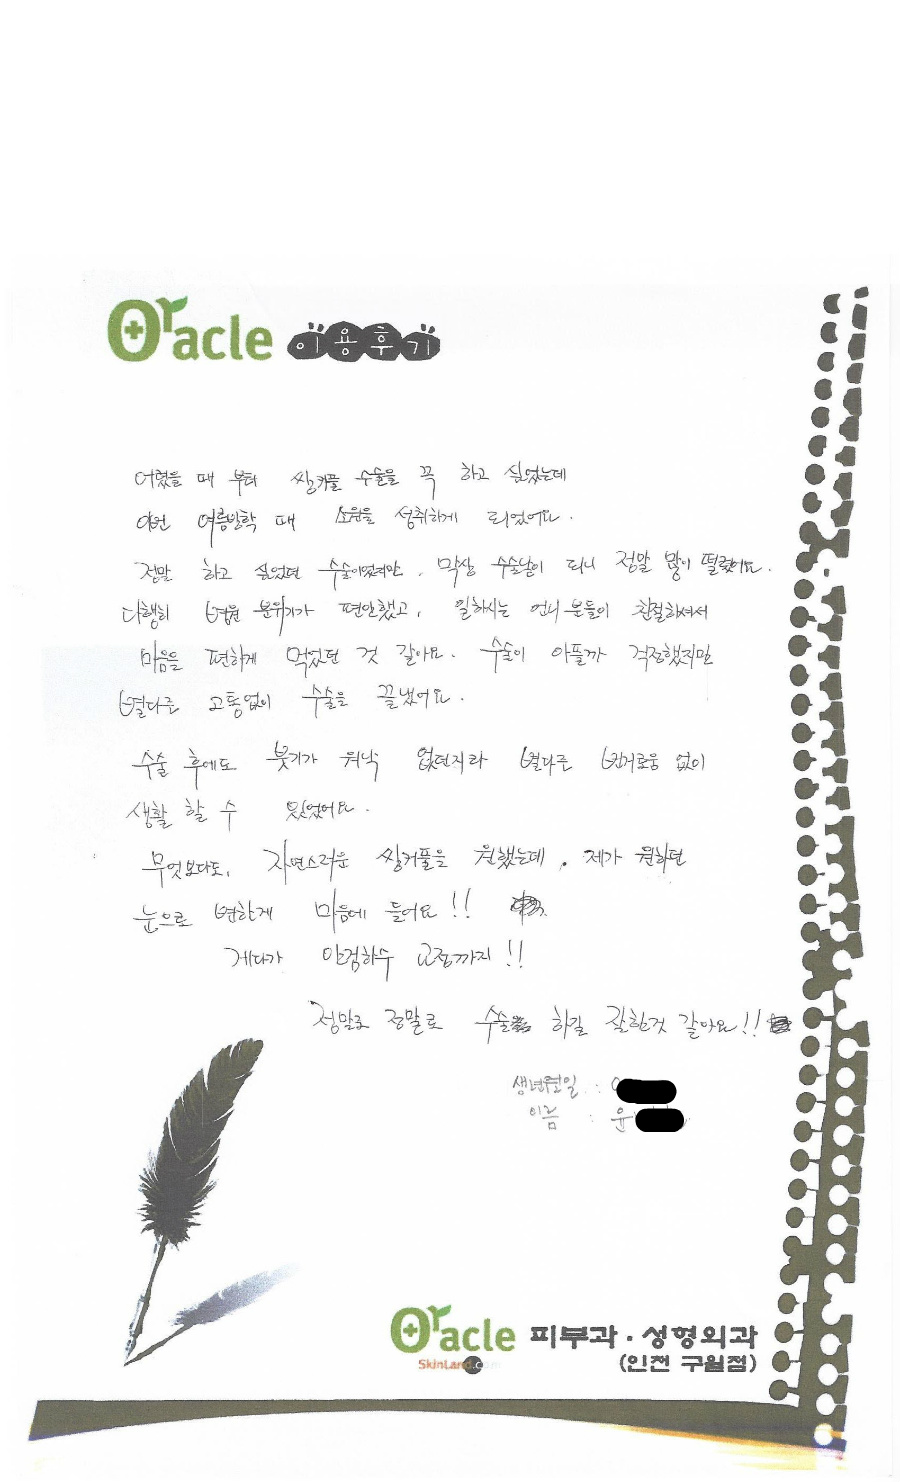 Oracle 이용후기
어렸을 때 부터 쌍커플 수술을 꼭 하고 싶었는데
이번 여름방학 때 소원을 성취하게 되었어요.
정말 하고 싶었던 수술이었지만, 막상 수술날이 되니 정말 많이 떨렸어요.
다행히 병원 분위기가 편안했고, 일하시는 언니분들이 친절하셔서
마음을 편하게 먹었던 것 같아요. 수술이 아플까 걱정했지만
별다른 고통없이 수술을 끝냈어요.
수술 후에도 붓기가 워낙 없던지라 별다른 번거로움 없이
생활 할 수 있었어요.
무엇보다도, 자연스러운 쌍커풀을 원했는데, 제가 원하던
눈으로 변한게 마음에 들어요!!
게다가 안검하수 교정까지!!
정말로 정말로 수술 하길 잘한것 같아요!!
생년월일 :
이름 : 윤
Oracle 피부과·성형외과
SkinLand.com (인천 구월점)